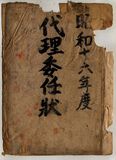 昭和十六年度
代理委任狀